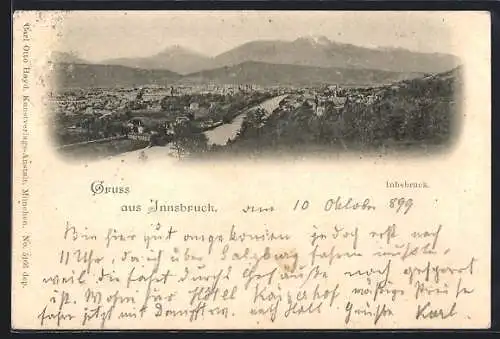 Carl Otto Hayd, Kunstverlags-Anstalt, München. No. 5568 dep.
Innsbruck.
Gruss
aus Innsbruch.
am 10 Oktober 899
Bin hier gut angekomen jedoch erst nach
11 Uhr, da ich über Salzburg fahren mußte,
weil die fahrt durchs noch gesperrt
ist. Wohne hier Hôtel Kaiserhof mäßige Preise
fahre jetzt mit nach Hall. Grüsse Karl.